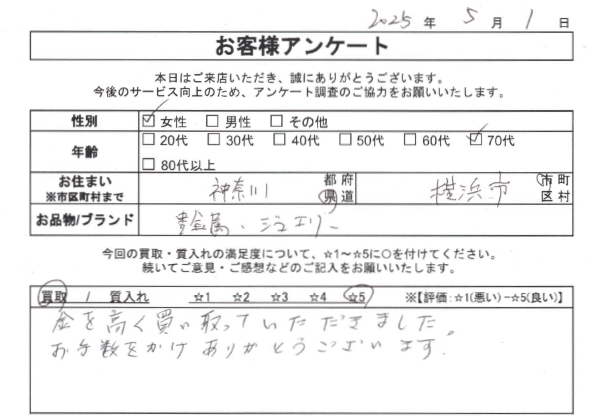 2025 年 5 月 1 日
お客様アンケート
本日はご来店いただき、誠にありがとうございます。
今後のサービス向上のため、アンケート調査のご協力をお願いいたします。
性別 ☑ 女性 □ 男性 □ その他
年齢 □ 20代 □ 30代 □ 40代 □ 50代 □ 60代 ☑ 70代
□ 80代以上
お住まい ※市区町村まで 神奈川 都府県道 横浜市 市町区村
お品物/ブランド 貴金属・ジュエリー
今回の買取・質入れの満足度について、☆1～☆5に○を付けてください。
続いてご意見・ご感想などのご記入をお願いいたします。
買取 / 質入れ ☆1 ☆2 ☆3 ☆4 ☆5 ※【評価:☆1(悪い)−☆5(良い)】
金を高く買い取っていただきました。
お手数をかけありがとうございます。